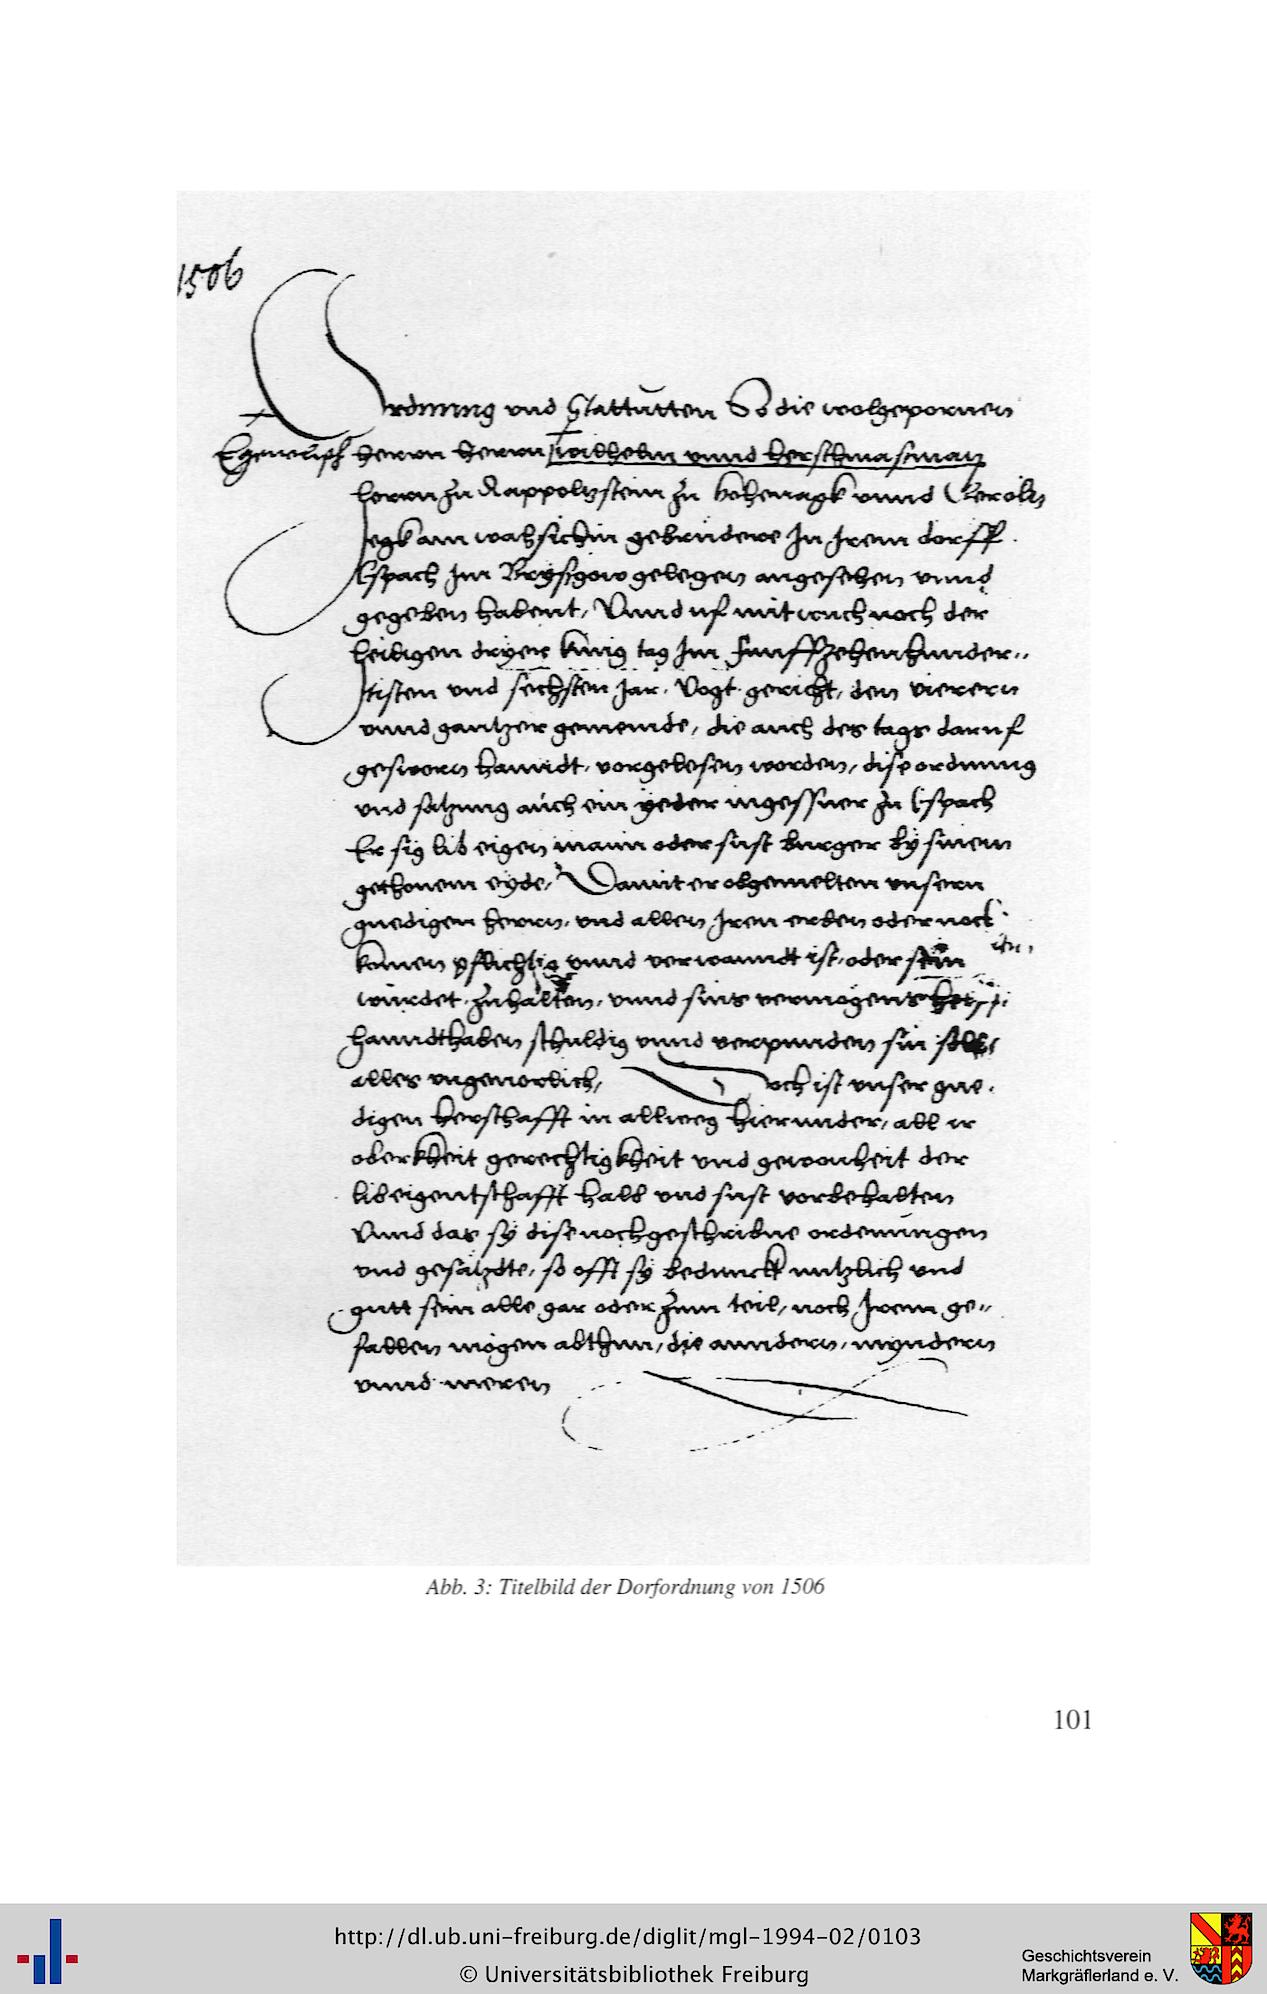 1506
Ordnung vnd Stattutten So die wolgepornen
Egenolph herrn herrn wilhelm vnnd her schmasman
herrn zu Rappoltzstein zu hohenagk vnnd Geroltz
egk am wahsichin gebrüdere In Irem dorff
Espach Im Bryßgow gelegen angesehen vnnd
gegeben habent, Vnnd uf mitwuch noch der
heiligen dryer kunig tag Im funffzehenhunder„
tisten vnd sechsten Jar. Vogt gericht, den vierern
vnnd gantzer gemeinde, die auch des tags daruf
gesworn hanndt, vorgelesen worden, dise ordnung
vnd satzung auch ein yeder ingessner zu Espach
Er sig lib eigen mann oder sust burger by sinem
gethonem eyde, Damit er obgemelten vnsern
gnedigen herrn, vnd allen Iren erben oder noch
komen pflichtig vnnd verwanndt ist, oder sein
würdet, zu halten, vnnd sins vermögens
hanndthaben schuldig vnnd verpunden sin soll
alles vngeuorlich, Doch ist vnser gne
digen herschafft in allweg hierunder, all ir
oberkheit gerechtigkheit vnd gewonheit der
libeigentschafft halb vnd sust vorbehalten
Vnnd das sy dise nochgeschribne ordenungen
vnd gesätzdte, so offt sy bedunckt nutzlich vnd
gutt sein alle gar oder zum teil, noch Irem ge„
fallen mögen abthun, die anndern, myndern
vnnd meren
Abb. 3: Titelbild der Dorfordnung von 1506
101
http://dl.ub.uni-freiburg.de/diglit/mgl-1994-02/0103
© Universitätsbibliothek Freiburg
Geschichtsverein
Markgräflerland e. V.